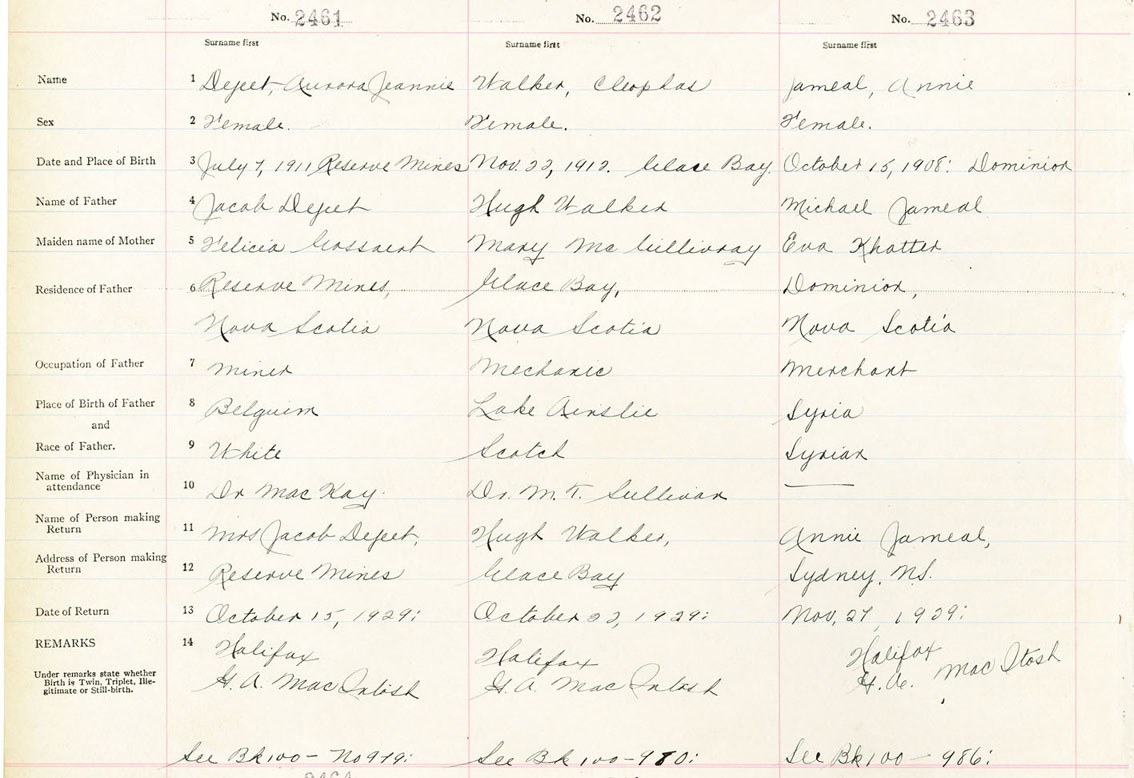 No. 2461 No. 2462 No. 2463
Surname first Surname first Surname first
Name 1 Depet, Aurora Jeannie Walker, Cleophas Jameal, Annie
Sex 2 Female. Female. Female.
Date and Place of Birth 3 July 7, 1911 Reserve Mines Nov. 22, 1912. Glace Bay. October 15, 1908: Dominion
Name of Father 4 Jacob Depet Hugh Walker Michael Jameal
Maiden name of Mother 5 Felicia Gossaert Mary McGillivray Eva Khatter
Residence of Father 6 Reserve Mines, Glace Bay, Dominion,
Nova Scotia Nova Scotia Nova Scotia
Occupation of Father 7 Miner Mechanic Merchant
Place of Birth of Father 8 Belguim Lake Ainslie Syria
and
Race of Father. 9 White Scotch Syrian
Name of Physician in
attendance 10 Dr MacKay. Dr. M. T. Sullivan
Name of Person making
Return 11 Mrs Jacob Depet, Hugh Walker, Annie Jameal,
Address of Person making
Return 12 Reserve Mines Glace Bay Sydney, N.S.
Date of Return 13 October 15, 1929: October 22, 1929: Nov, 27, 1929:
REMARKS 14 Halifax Halifax Halifax
Under remarks state whether
Birth is Twin, Triplet, Ille-
gitimate or Still-birth.
G. A. MacIntosh G. A. MacIntosh Mac Itosh
See Bk 100 – No 979: See Bk 100 – 980: See Bk 100 – 986:
2464